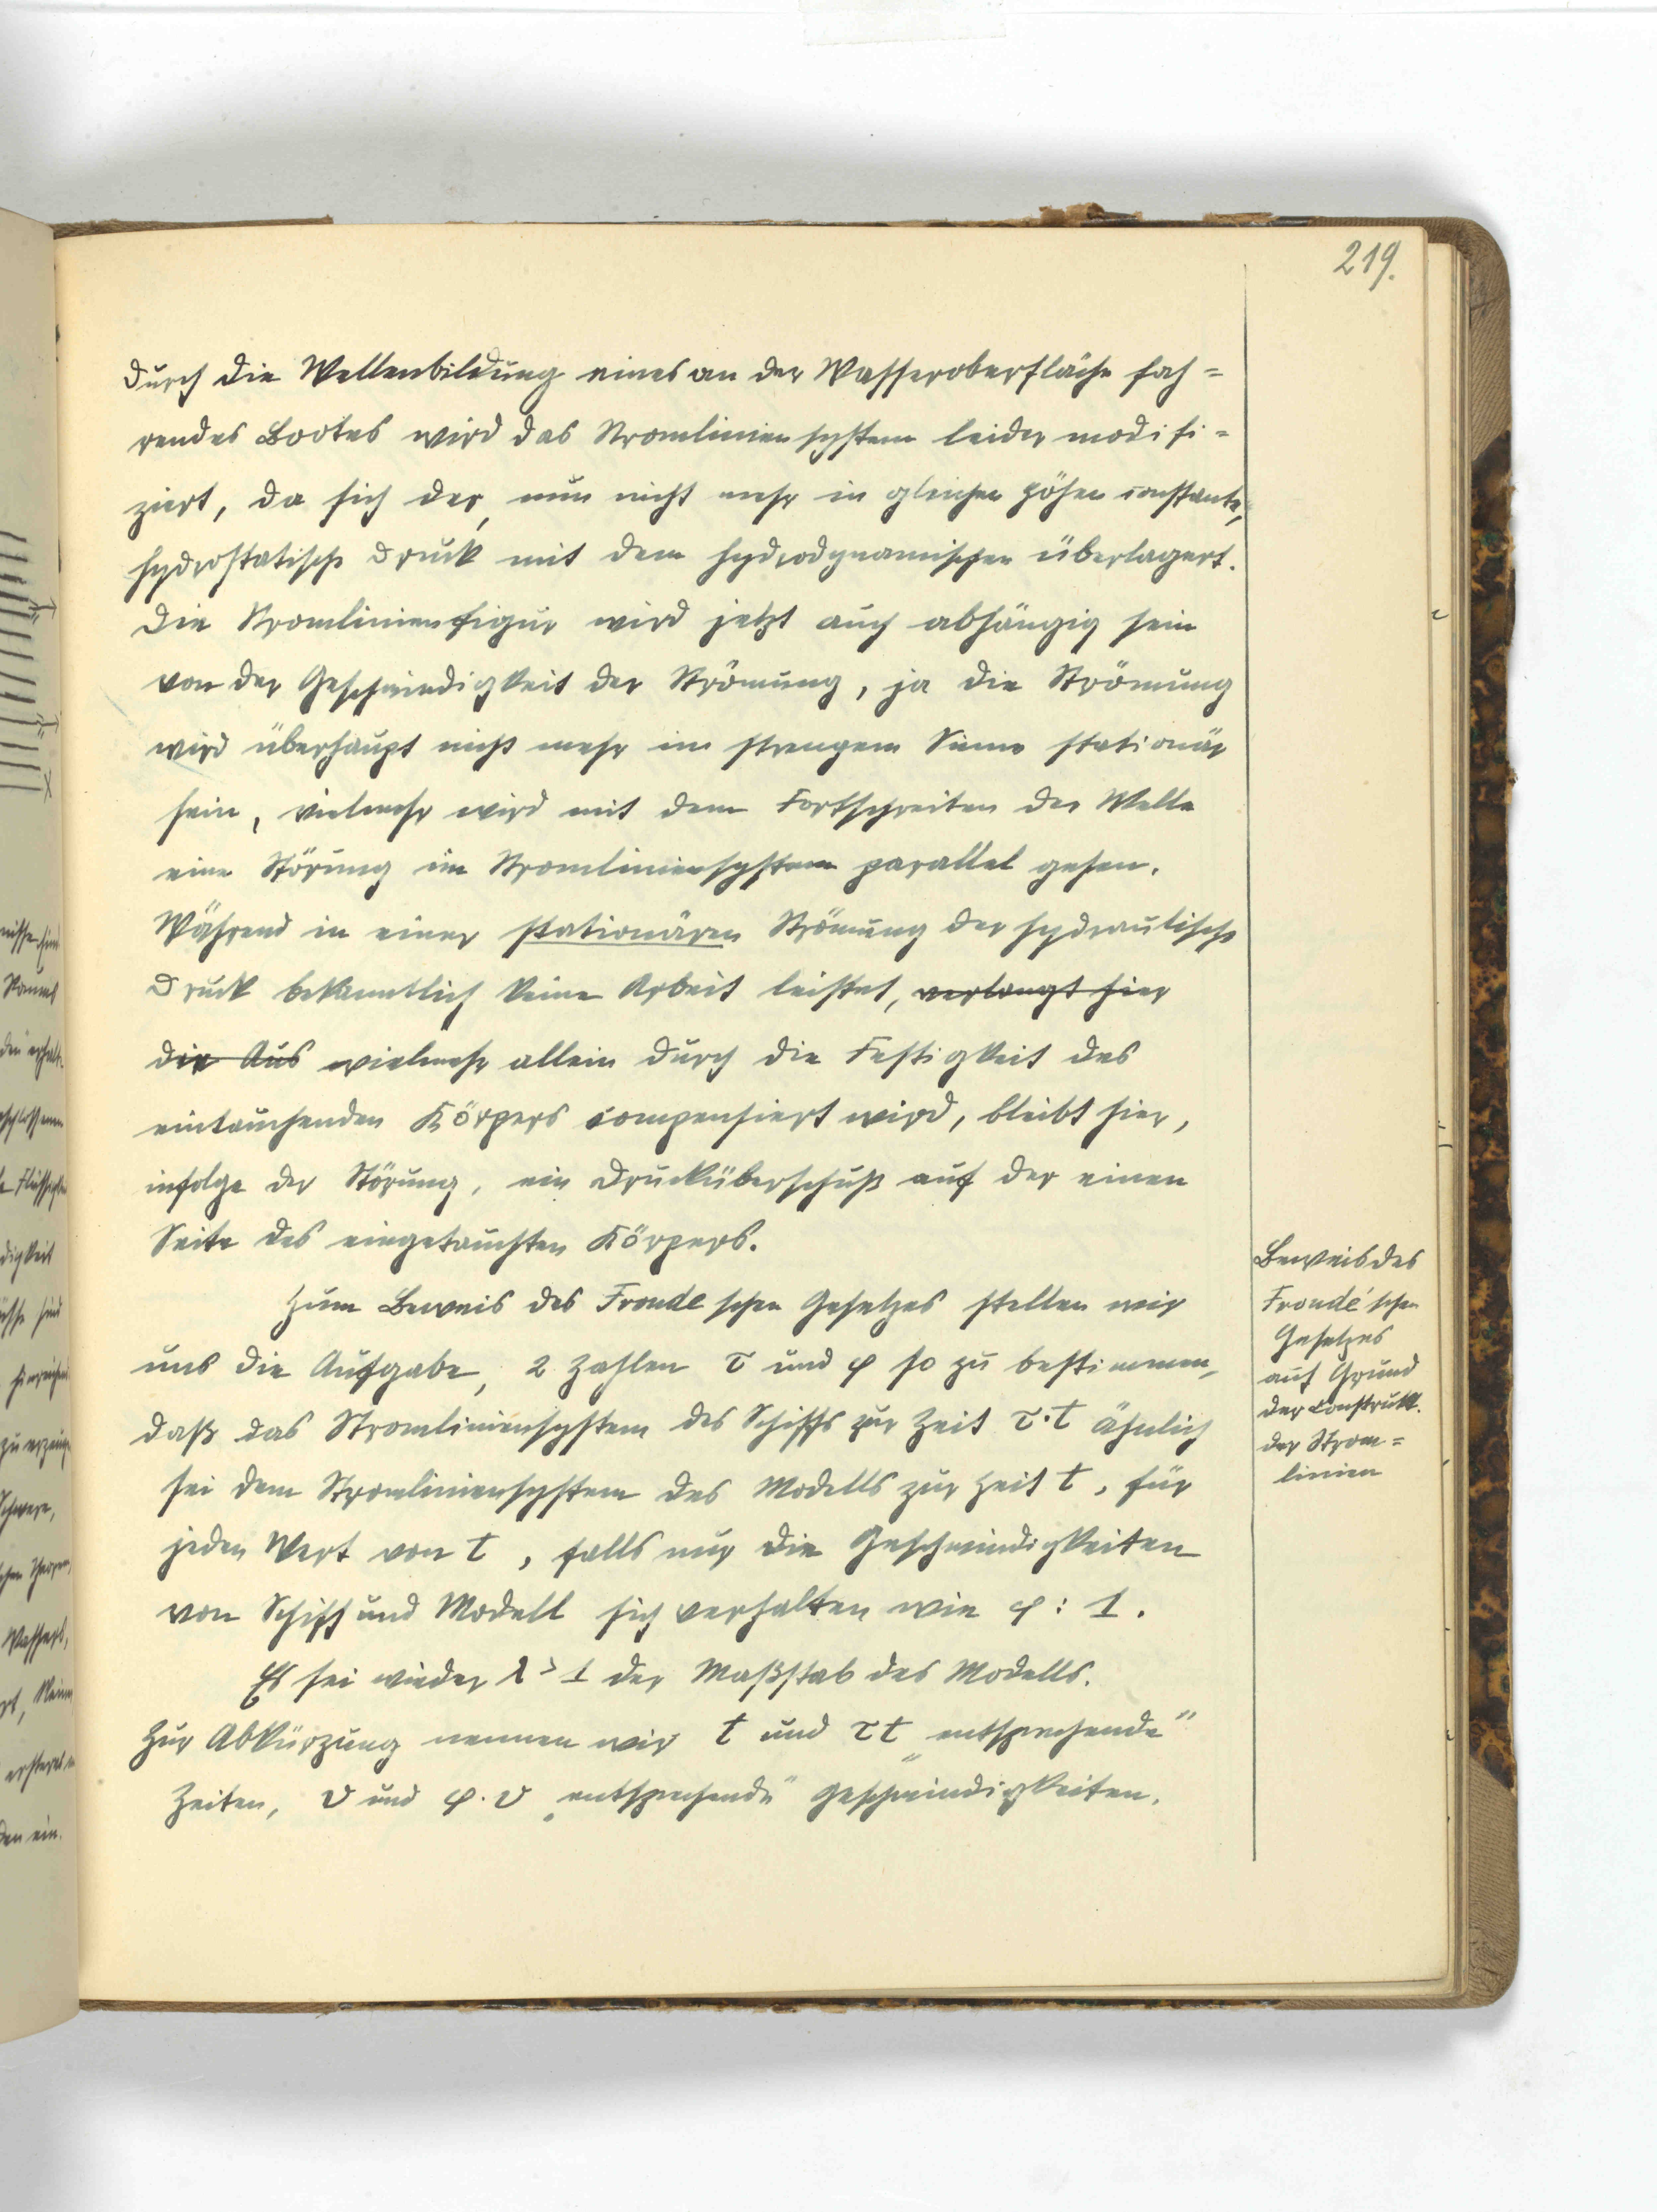 219.
Durch die Wellenbildung eines an der Wasseroberfläche fah=
rendes Bootes wird das Stromliniensystem leider modifi=
ziert, da sich der, nun nicht mehr in gleichen Höhen constante,
hydrostatische Druck mit dem hydrodynamischen überlagert.
Die Stromlinienfigur wird jetzt auch abhängig sein
von der Geschwindigkeit der Strömung, ja die Strömung
wird überhaupt nicht mehr im strengem Sinne stationär
sein, vielmehr wird mit dem Fortschreiten der Welle
eine Störung im Stromliniensystem parallel gehen.
Während in einer stationären Strömung der hydraulische
Druck bekanntlich keine Arbeit leistet, verlangt hier
die Aus vielmehr allein durch die Festigkeit des
eintauchenden Körpers compensiert wird, bleibt hier,
infolge der Störung, ein Drucküberschuß auf der einen
Seite des eingetauchten Körpers.
Zum Beweis des Froude'schen Gesetzes stellen wir
uns die Aufgabe, 2 Zahlen τ und φ so zu bestimmen,
daß das Stromliniensystem des Schiffs zur Zeit τ·t ähnlich
sei dem Stromliniensystem des Modells zur Zeit t, für
jeden Wert von t, falls nur die Geschwindigkeiten
von Schiff und Modell sich verhalten wie φ : 1.
Es sei wieder λ > 1 der Maßstab des Modells.
Zur Abkürzung nennen wir t und τt „entsprechende"
Zeiten, v und φ·v „entsprechende" Geschwindigkeiten.
Beweis des
Froude'schen
Gesetzes
auf Grund
der Construkt.
der Strom=
linien